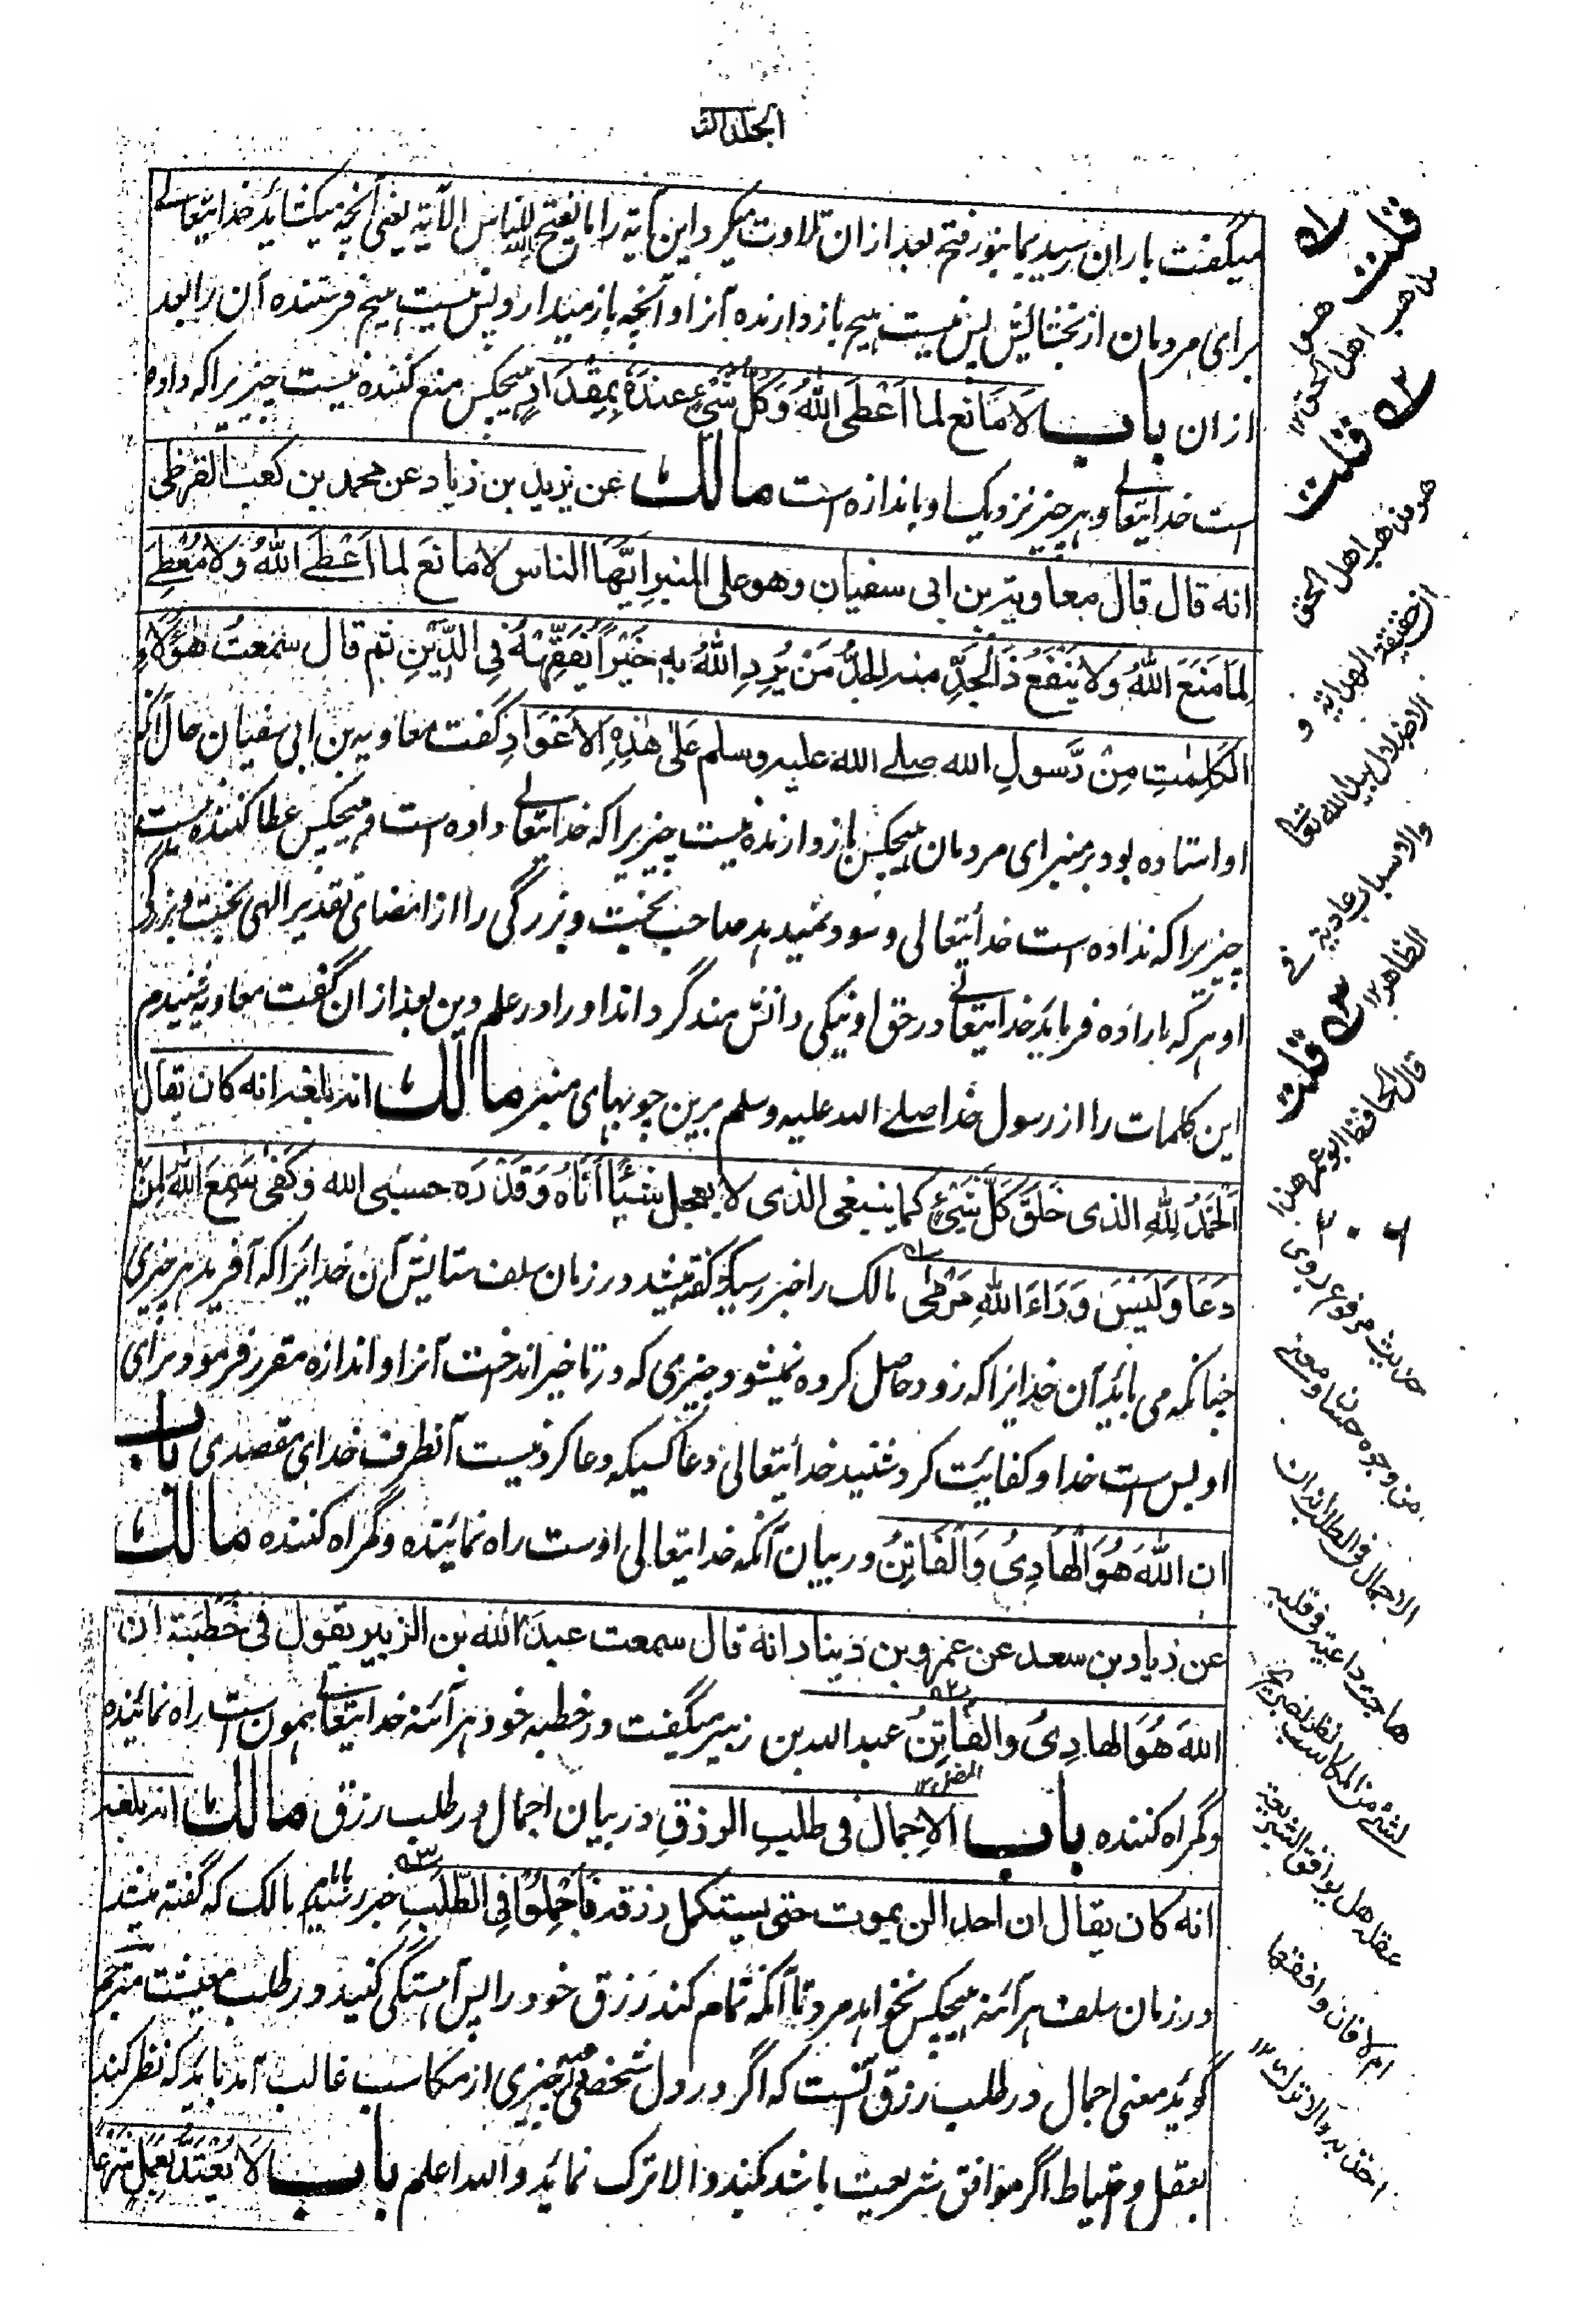 الجلد الثا
میگفت باران رسید بما بنوء فتح بعد ازان تلاوت میکرد این آیه را ما یفتح الله للناس الآیة یعنی آنچه میکشاید خدایتعالے
برای مردمان از بخشایش پس نیست هیچ بازدارنده آنرا و آنچه باز میدارد پس نیست هیچ فرستنده آن را بعد
ازان باب لَا مَانع لما اَعْطَی اللّٰهُ وَکُلُّ شَیْءٍ عِنْدَهٗ بِمِقْدَارٍ هیچکس منع کننده نیست چیزیرا که داده
است خدایتعالے و هر چیز نزدیک او باندازه است مالك عن یزید بن زیاد عن محمد بن کعب القرظی
انه قال قال معاویة بن ابی سفیان وهو علی المنبر اَیُّهَا الناس لا مانعَ لما اَعْطَے اللّٰهُ ولا مُعْطِےَ
لِمَا مَنَعَ اللّٰهُ ولا یَنْفَعُ ذَا الْجَدِّ منه الجَدُّ مَنْ یُرِدِ اللّٰهُ بِهٖ خَیْراً یُفَقِّهْهُ فِی الدِّیْنِ ثم قال سَمِعتُ هٰؤُلَاءِ
الکَلِمٰتِ مِنْ رَّسولِ الله صلے الله علیه وسلم عَلٰی هٰذِهِ الْاَعْوَادِ گفت معاویه بن ابی سفیان حال آنکه
او استاده بود بر منبر ای مردمان هیچکس بازدارنده نیست چیزیرا که خدایتعالے داده است و هیچکس عطا کننده نیست
چیزیرا که نداده است خدایتعالی و سود نمیدهد صاحب بخت و بزرگی را از امضای تقدیر الهی بخت و بزرگی
او هر که باراده فرماید خدایتعالے در حق او نیکی دانشمند گرداند او را در علم دین بعد ازان گفت معاویه شنیدم
این کلمات را از رسول خدا صلے الله علیه وسلم برین چوبهای منبر مالك انه بلغه انه کان یقال
اَلْحَمْدُ لِلّٰهِ الذی خَلَقَ کُلَّ شَیْءٍ کما ینبغی الذی لا یعجل شَیْئًا اَنَاهُ وَقَدَّرَهٗ حسبی الله وَکَفٰی سَمِعَ اللّٰهُ لِمَنْ
دَعَا وَلَیْسَ وَرَاءَ اللّٰهِ مَرْمٰی مالک را خبر رسید که گفته میشد در زمان سلف ستایش آن خدایرا که آفرید هر چیزی
چنانکه می باید آن خدایرا که زود حاصل کرده نمیشود چیزی که در تاخیر انداخت آنرا و اندازه مقرر فرمود برای
او بس است خدا و کفایت کرد شنید خدایتعالی دعا کسیکه دعا کرد نیست آنطرف خدای مقصدی باب
ان اللّٰهَ هُوَ الْهَادِیُ وَالْفَاتِنُ در بیان آنکه خدایتعالی اوست راه نماینده و گمراه کننده مالك
عن زیاد بن سعد عن عمرو بن دینار انه قال سمعت عبدَ الله بن الزبیر یقول فی خُطْبَتِه ان
اللّٰهَ هُوَ الهادِیُ والفاتِنُ عبد الله بن زبیر میگفت در خطبه خود هر آئنه خدایتعالے همون است راه نماینده
و گمراه کننده باب الاجمال فی طلبِ الرزقِ در بیان اجمال در طلب رزق مالك انه بلغه
انه کان یقال ان احدا لن یموت حتی یستکمل رزقه فَاَجْمِلُوْا فِی الطَّلَبِ خبر رسید مالک که گفته میشد
در زمان سلف هر آئنه هیچکس نخواهد مرد تا آنکه تمام کند رزق خود را پس آهستگی کنید در طلب معیشت مترجم
گوید معنی اجمال در طلب رزق آنست که اگر در دل شخصی چیزی از مکاسب غالب آمد باید که نظر کند
بعقل و احتیاط اگر موافق شریعت باشد کند والا ترک نماید والله اعلم باب لَا یُعْتَدُّ بعمل شرعا
قلت
مذهب اهل الحق
قلت
هو مذهب اهل الحق
ان حقیقة الهدایة و
الاضلال بید الله تعالی
والاسباب عادیة فی
الظاهر
قلت
قال الحافظ ابو عمر هذا
حدیث مرفوع روی
من وجوه حسان ومعنی
الاجمال فی الطلب ان
هاجت داعیة فی قلبه
لشیء من المکاسب
عقله هل یوافق الشریعة
ام لا فان وافقها
اخذ به والا ترك